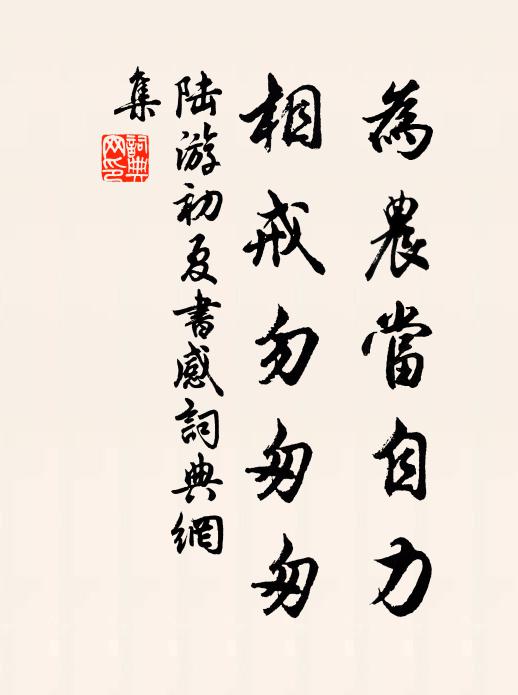 為農當自力
相戒勿匆匆
陸游初夏書感詞典網
集
詞典網印